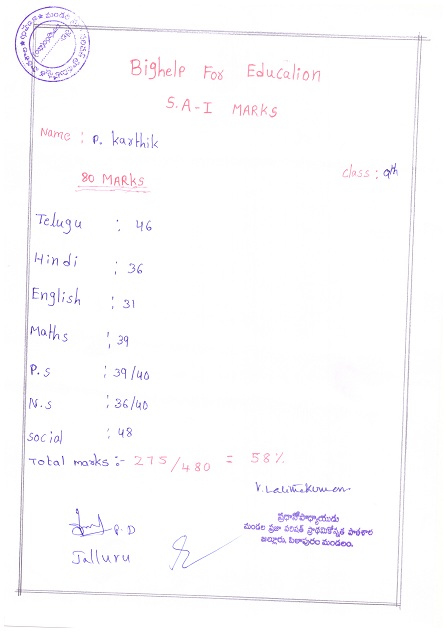 Bighelp For Education
S.A-I MARKS
Name : P. Karthik
Class : 9th
80 MARKS
Telugu : 46
Hindi : 36
English : 31
Maths : 39
P.S : 39/40
N.S : 36/40
social : 48
Total marks :- 275/480 = 58%
P.D
Jalluru
ప్రధానోపాధ్యాయుడు
మండల ప్రజా పరిషత్ ప్రాథమికోన్నత పాఠశాల
జల్లూరు, పిఠాపురం మండలం.